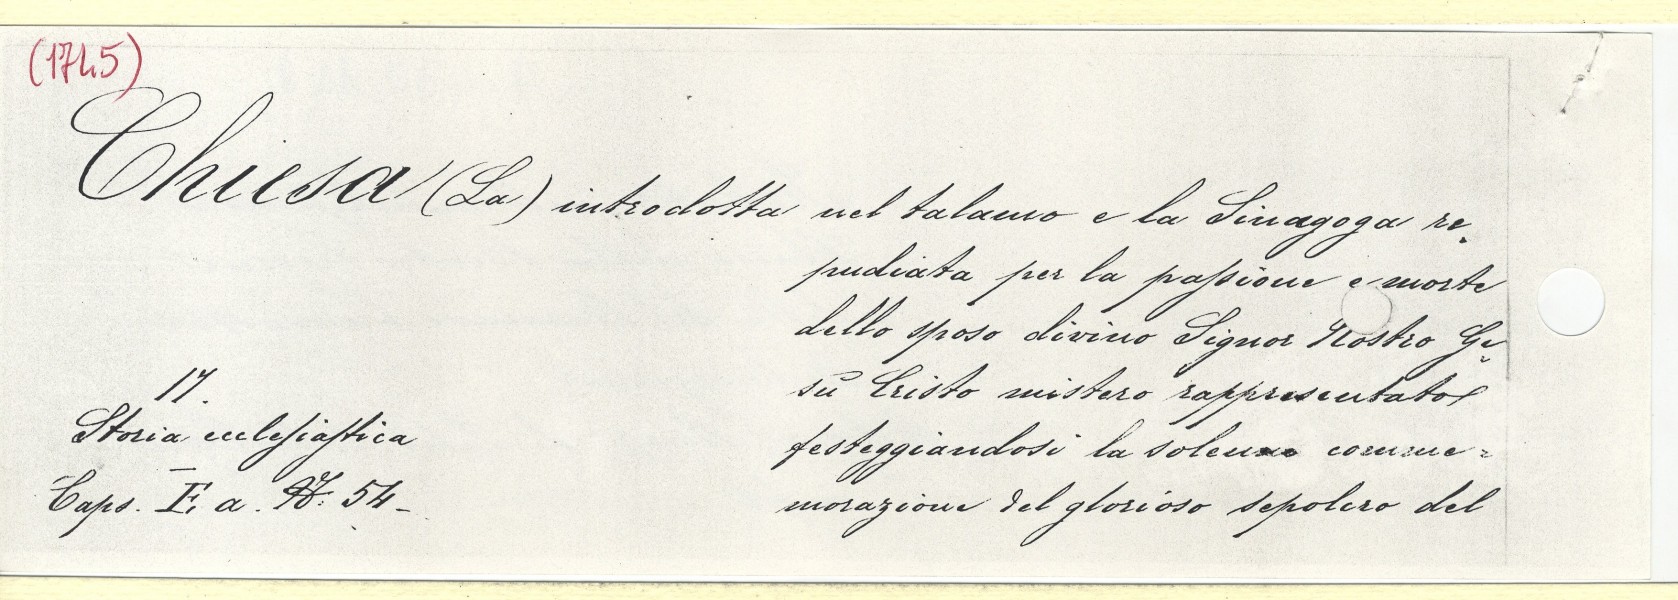 (1745)
Chiesa (La) introdotta nel talamo e la Sinagoga re-
pudiata per la passione e morte
dello sposo divino Signor Nostro Ge-
sù Cristo mistero rappresentato
festeggiandosi la solenne comme-
morazione del glorioso sepolcro del
17.
Storia ecclesiastica
Caps. I, a. N: 54-